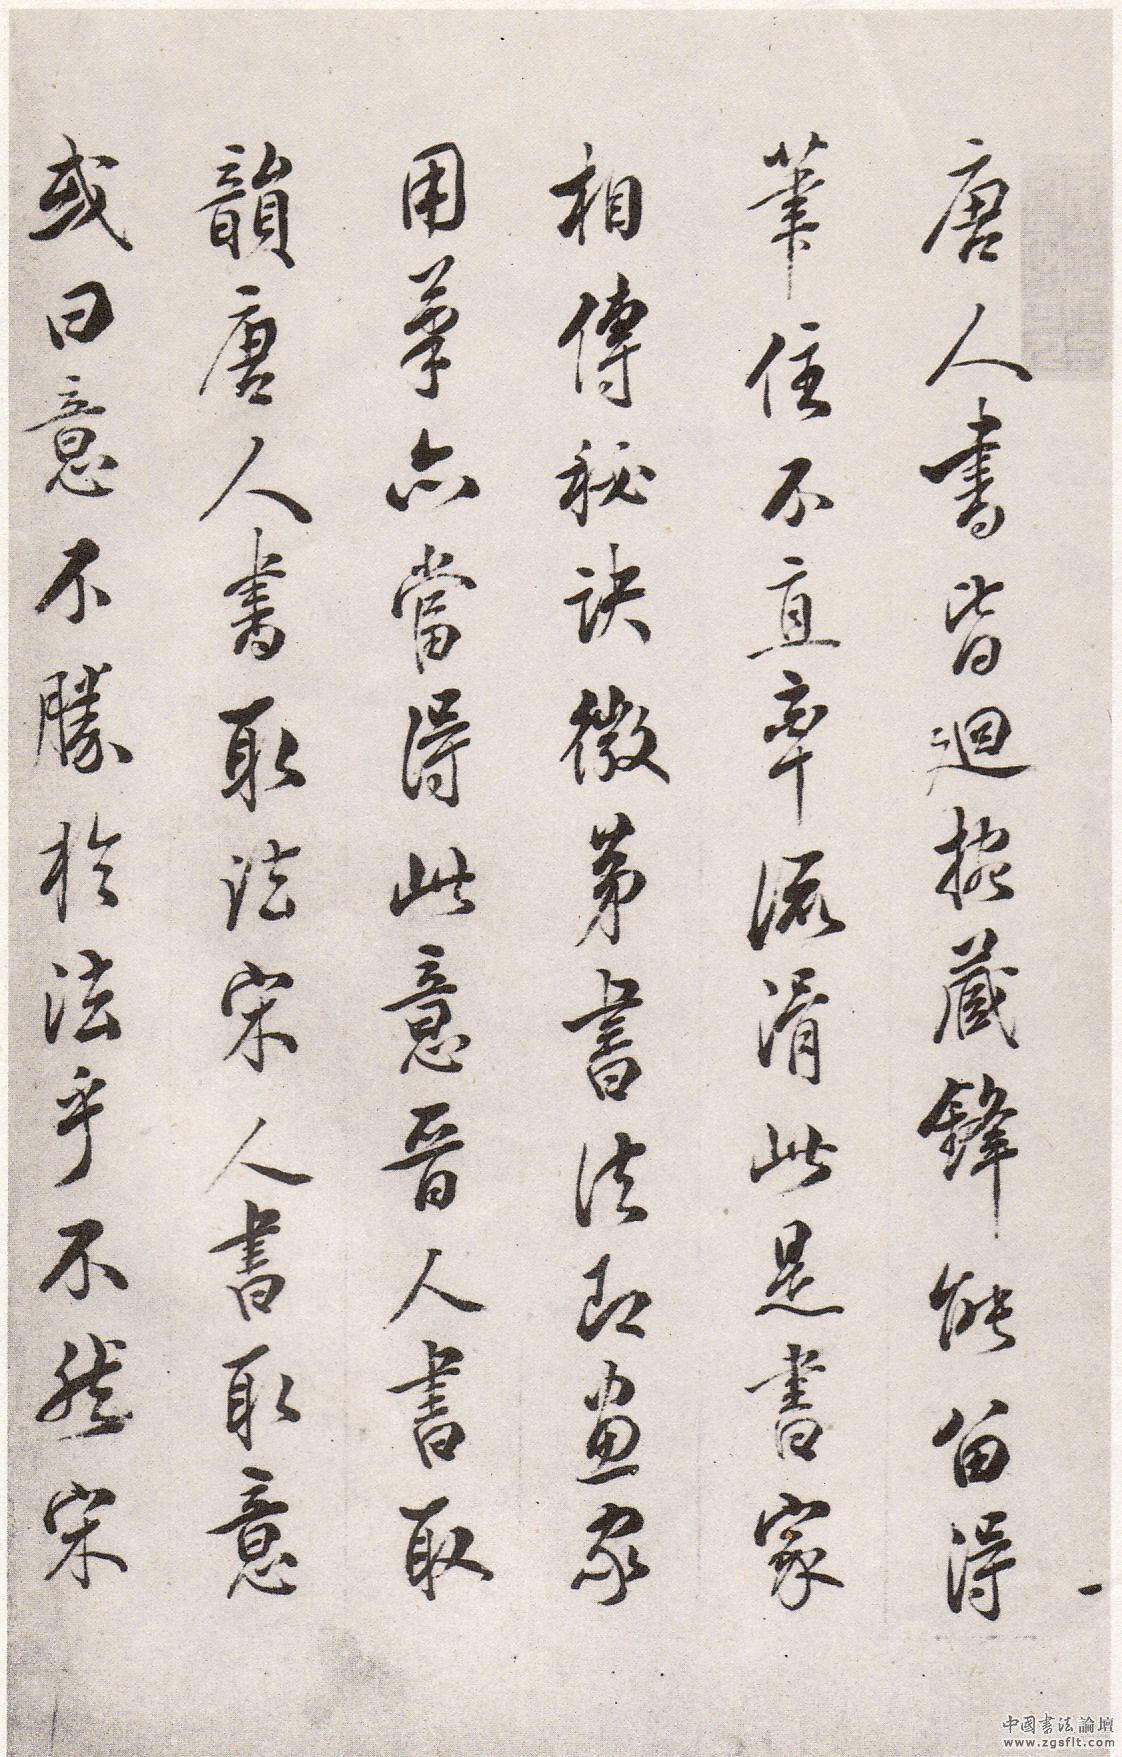 唐人書皆迴腕藏鋒能留得
筆住不直率流滑此是書家
相傳秘訣微第書法即畫家
用筆亦當得此意晉人書取
韻唐人書取法宋人書取意
或曰意不勝於法乎不然宋
中國書法論壇
www.zgsflt.com